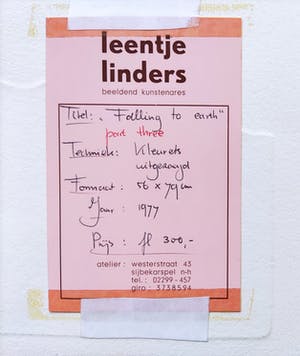 leentje
linders
beeldend kunstenares
Titel: „Falling to earth"
part three
Techniek: Kleurets
uitgezaagd
Formaat: 56 x 79 cm
Jaar: 1977
Prijs: fl 300,-
atelier: westerstraat 43
sijbekarspel n-h
tel.: 02299-457
giro: 3738594